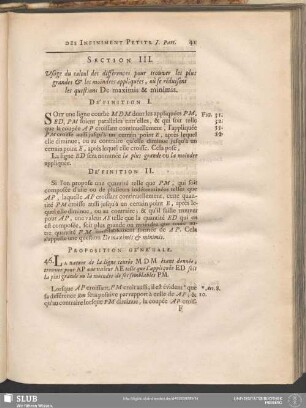 DES INFINIMENT PETITS. I. Part. 41
SECTION III.
Usage du calcul des différences pour trouver les plus
grandes & les moindres appliquées, où se réduisent
les questions De maximis & minimis.
DEFINITION I.
SOIT une ligne courbe MDM dont les appliquées PM, FIG. 31.
ED, PM soient paralleles entr'elles, & qui soit telle 32.
que la coupée AP croissant continuellement, l'appliquée 33.
PM croisse aussi jusqu'à un certain point E, après lequel
elle diminue; ou au contraire qu'elle diminue jusqu'à un
certain point E, après lequel elle croisse. Cela posé,
La ligne ED sera nommée la plus grande ou la moindre
appliquée.
DEFINITION II.
Si l'on propose une quantité telle que PM, qui soit
composée d'une ou de plusieurs indéterminées telles que
AP, laquelle AP croissant continuellement, cette
quantité PM croisse aussi jusqu'à un certain point E, après lequel
elle diminue, ou au contraire; & qu'il faille trouver
pour AP, une valeur AE telle que la quantité ED qui en
est composée, soit plus grande ou moindre que toute
autre quantité PM formée de AP. Cela
s'appelle une question De maximis & minimis.
PROPOSITION GENERALE.
46. LA nature de la ligne courbe MDM étant donnée;
trouver pour AP une valeur AE telle que l'appliquée ED soit
la plus grande ou la moindre de ses semblables PM.
Lorsque AP croissant, PM croît aussi; il est évident* que * Art. 8.
sa différence sera positive par rapport à celle de AP; & 10.
qu'au contraire lorsque PM diminue, la coupée AP croissant
F
SLUB
Wir führen Wissen.